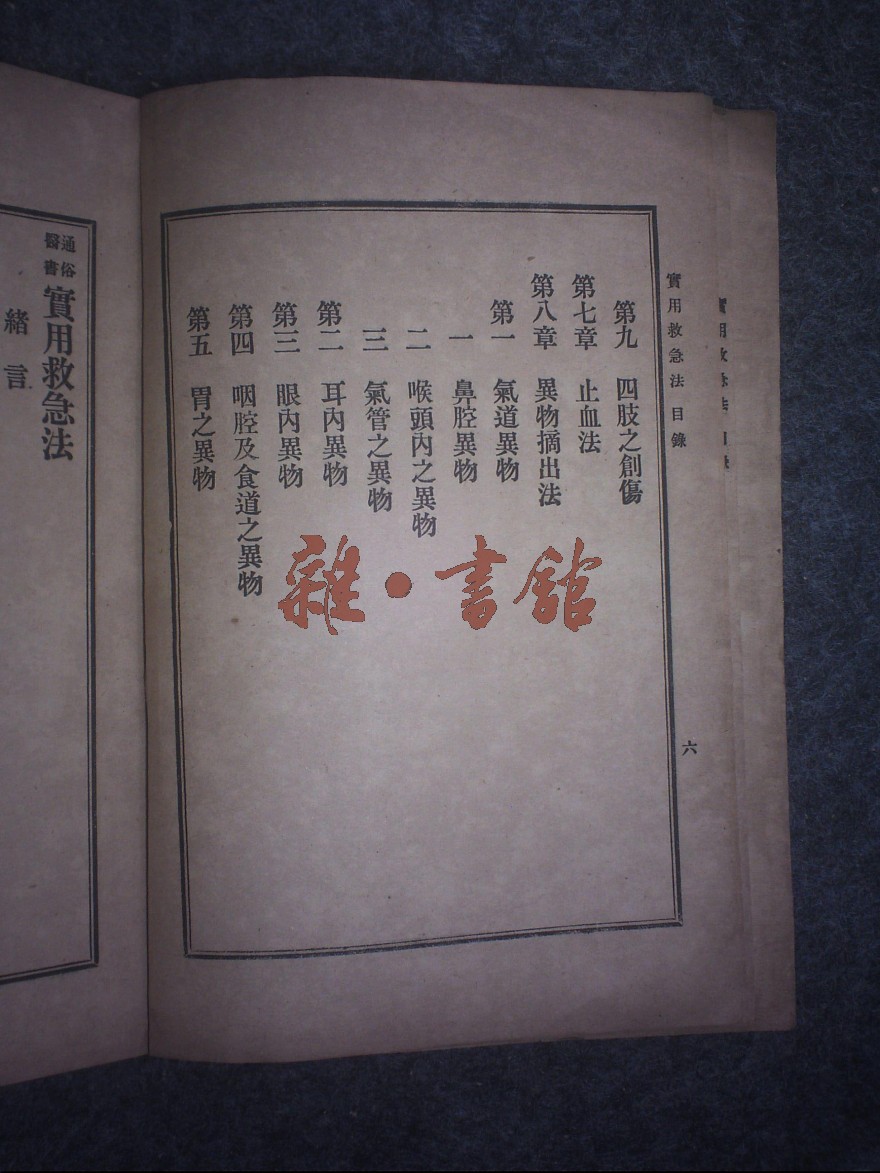 實用救急法 目錄
六
第九 四肢之創傷
第七章 止血法
第八章 異物摘出法
第一 氣道異物
一 鼻腔異物
二 喉頭內之異物
三 氣管之異物
第二 耳內異物
第三 眼內異物
第四 咽腔及食道之異物
第五 胃之異物
通俗醫書 實用救急法
緒言
雜·書館